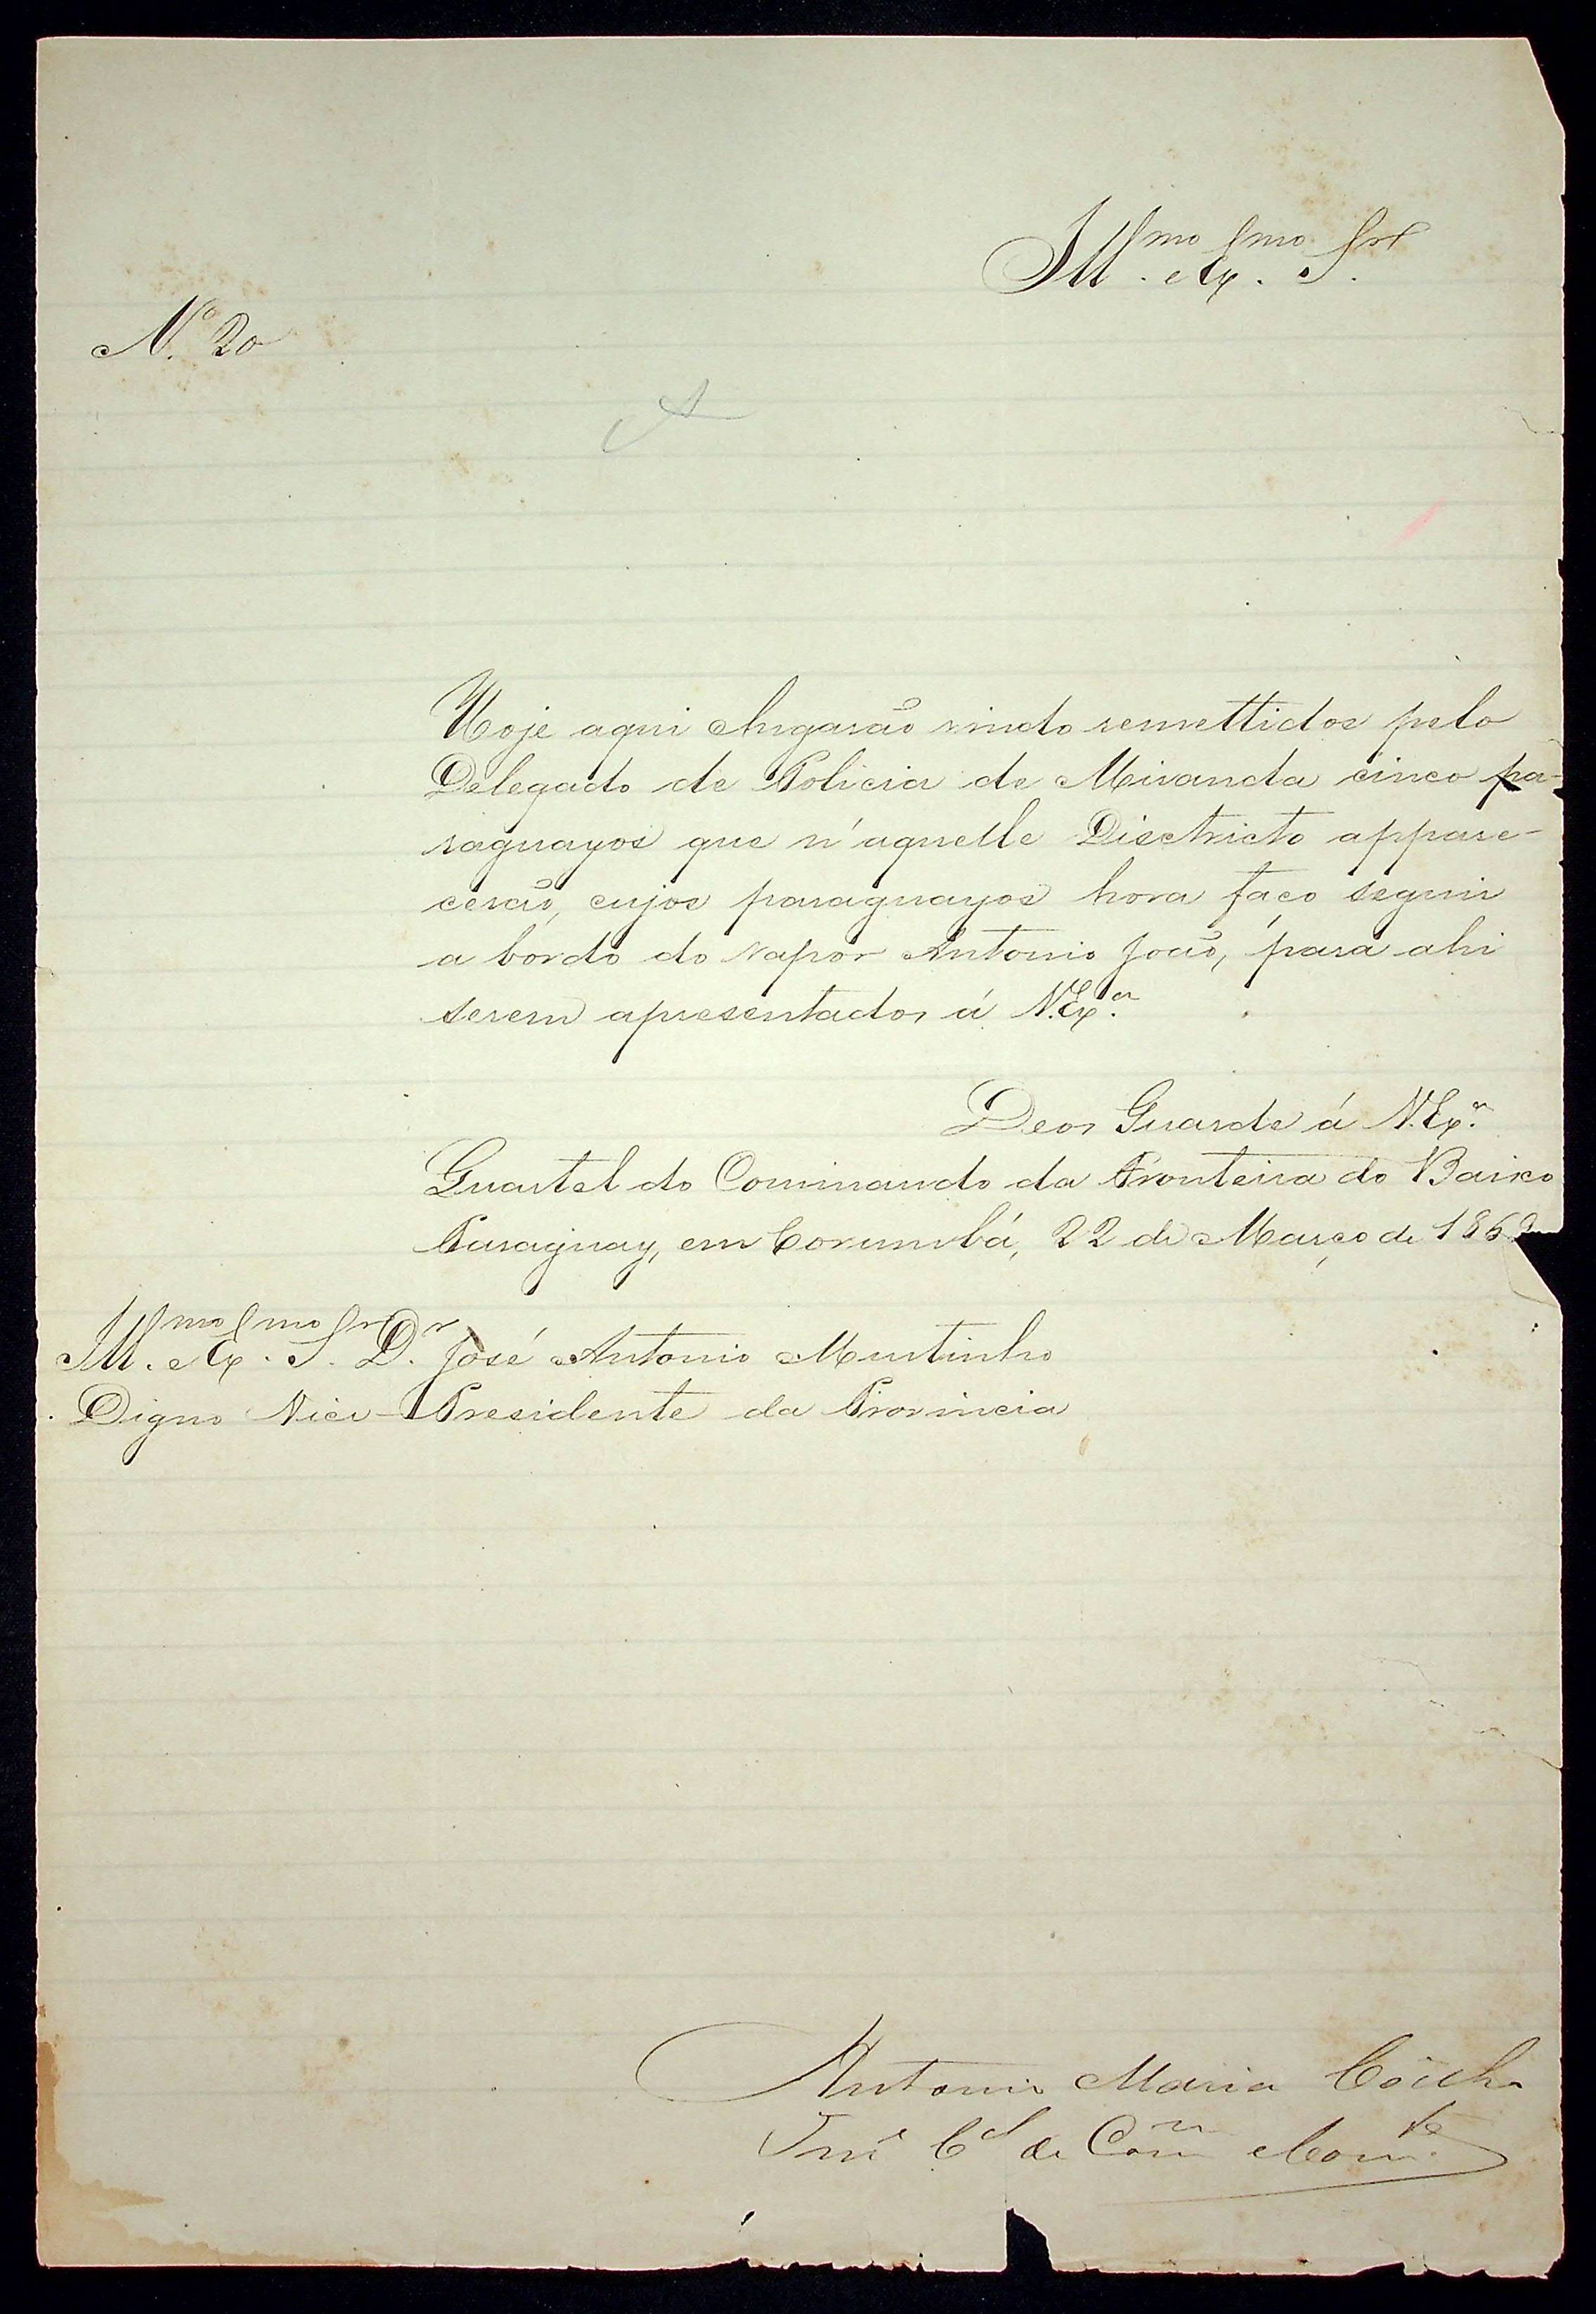 Ill.mo Ex.mo Sr.
N.º 20
Hoje aqui chegarão vindo remettidos pelo
Delegado de Policia de Miranda cinco pa-
raguayos que n'aquelle Disctricto appare-
cerão, cujos paraguayos hora faço seguir
a bordo do vapor Antonio João, para ahi
serem apresentados á V. Ex.ª
Deos Guarde á V. Ex.ª
Quartel do Commando da Fronteira do Baixo
Paraguay, em Corumbá, 22 de Março de 186
Ill.mo Ex.mo Sr. D.r José Antonio Murtinho
Digno Vice-Presidente da Provincia
Antonio Maria Coelho
Tne Cel de Com Com.te